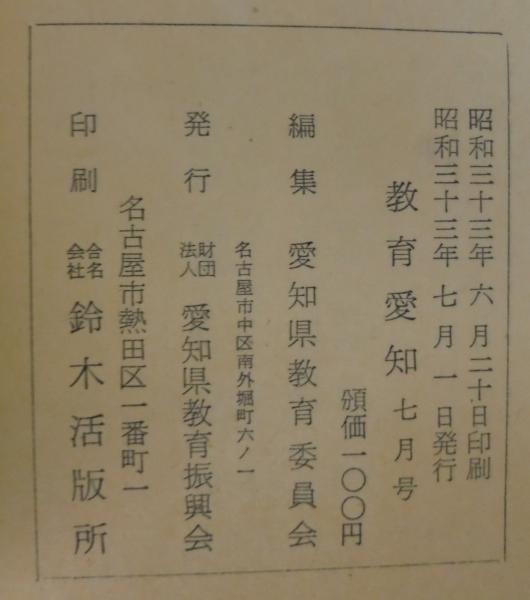 昭和三十三年六月二十日印刷
昭和三十三年七月一日発行
教育愛知七月号
頒価一〇〇円
編集 愛知県教育委員会
名古屋市中区南外堀町六ノ一
発行 財団法人 愛知県教育振興会
名古屋市熱田区一番町一
印刷 合名会社 鈴木活版所